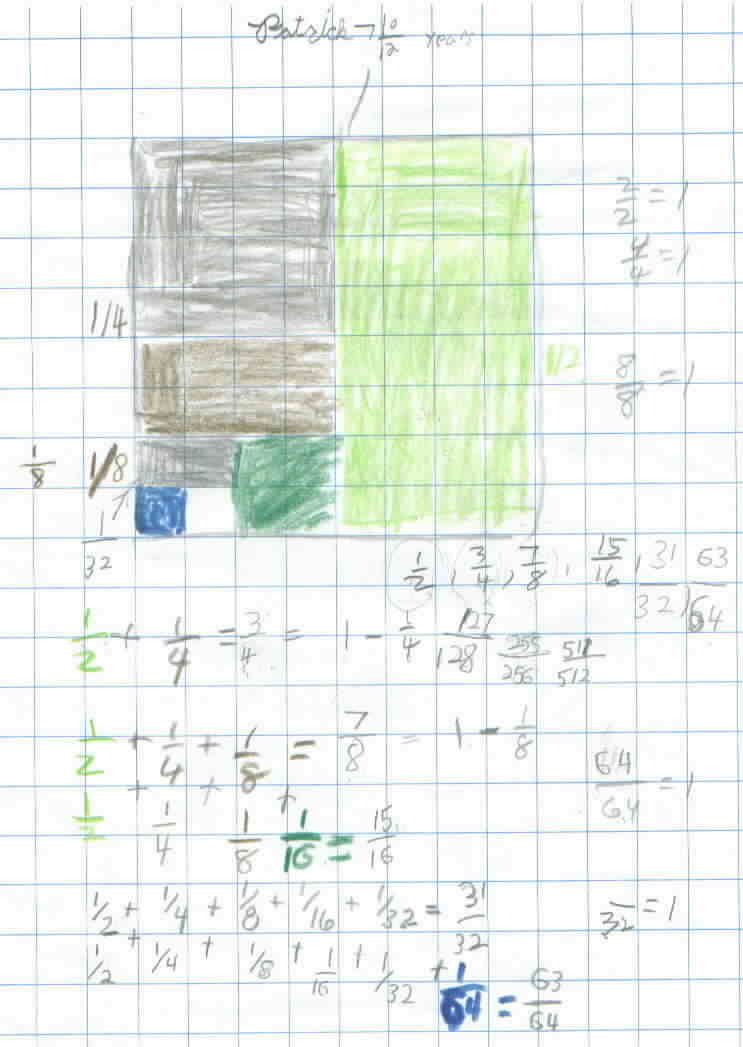 Patrick → 7 10/12 years
2/2 = 1
4/4 = 1
1/4
1/2
8/8 = 1
1/8 1/8
1/32
1/2, 3/4, 7/8, 15/16, 31/32, 63/64
127/128 255/256 511/512
1/2 + 1/4 = 3/4 = 1 - 1/4
1/2 + 1/4 + 1/8 = 7/8 = 1 - 1/8
64/64 = 1
1/2 + 1/4 + 1/8 + 1/16 = 15/16
1/2 + 1/4 + 1/8 + 1/16 + 1/32 = 31/32
/32 = 1
1/2 + 1/4 + 1/8 + 1/16 + 1/32 + 1/64 = 63/64